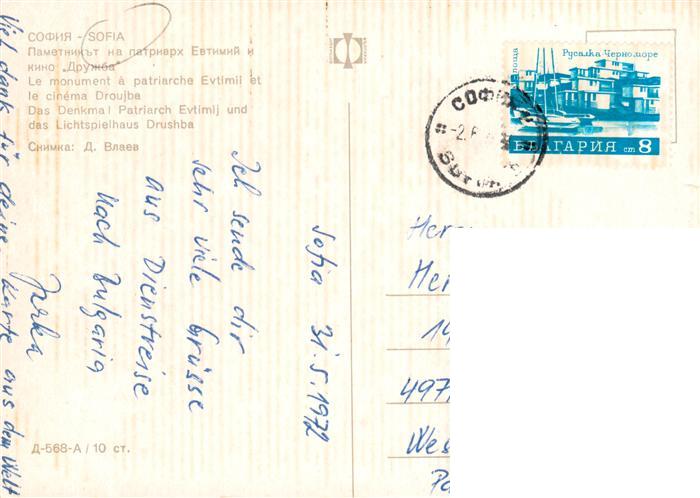 СОФИЯ - SOFIA
Паметникът на патриарх Евтимий и
кино „Дружба"
Le monument à patriarche Evtimii et
le cinéma Droujba
Das Denkmal Patriarch Evtimij und
das Lichtspielhaus Drushba
Снимка: Д. Влаев
Sofia 31.5.1972
Ich sende dir
sehr viele Grüsse
aus Dienstreise
nach Bulgaria
Jirka
Viel dank für deine Karte aus dem Welt
Д-568-А / 10 ст.
поща
Русалка Черноморе
БЪЛГАРИЯ ст 8
СОФИЯ
-2.
Her
497
Wes